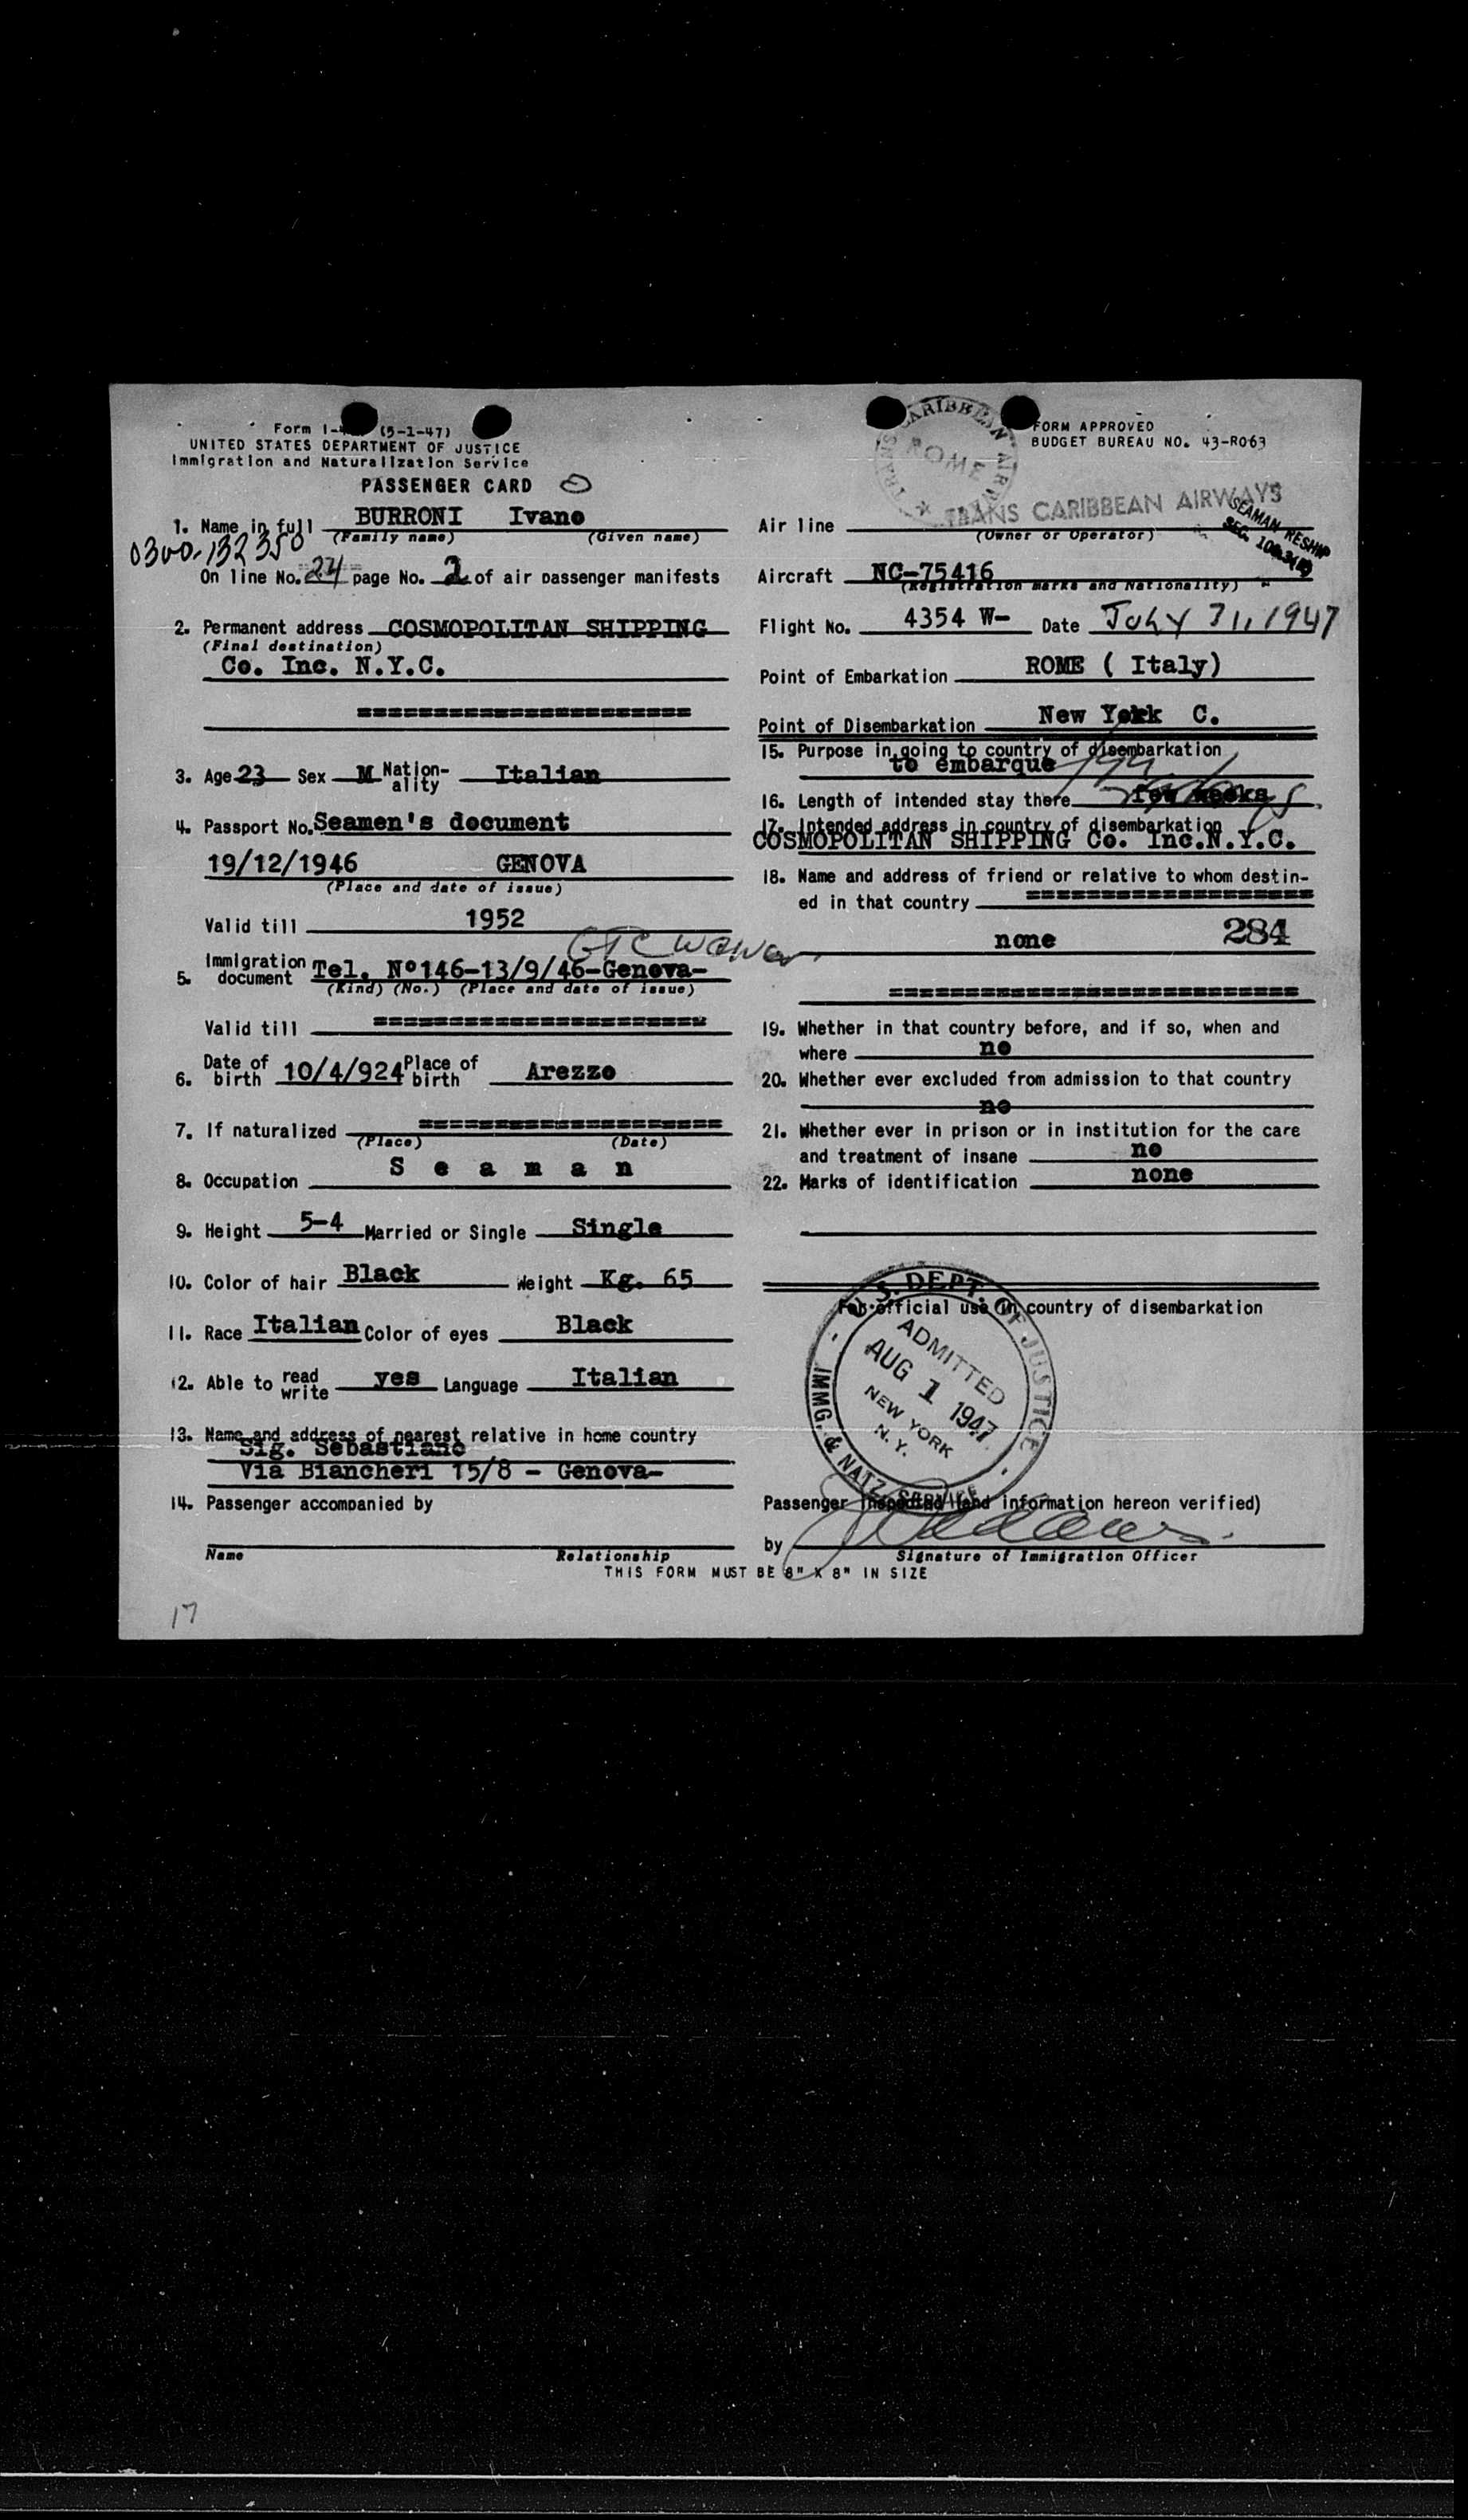 Form I- (5-1-47)
UNITED STATES DEPARTMENT OF JUSTICE
Immigration and Naturalization Service
PASSENGER CARD
1. Name in full BURRONI Ivano
(Family name) (Given name)
0300-132350
On line No. 24 page No. 2 of air passenger manifests
2. Permanent address COSMOPOLITAN SHIPPING
(Final destination)
Co. Inc. N.Y.C.
======================
3. Age 23 Sex M Nation-ality Italian
4. Passport No. Seamen's document
19/12/1946 GENOVA
(Place and date of issue)
Valid till 1952
5. Immigration document Tel. Nº146-13/9/46-Genova-
(Kind) (No.) (Place and date of issue)
Valid till ======================
6. Date of birth 10/4/924 Place of birth Arezzo
7. If naturalized ====================
(Place) (Date)
8. Occupation S e a m a n
9. Height 5-4 Married or Single Single
10. Color of hair Black Weight Kg. 65
11. Race Italian Color of eyes Black
12. Able to read write yes Language Italian
13. Name and address of nearest relative in home country
Sig. Sebastiano
Via Biancheri 15/8 - Genova-
14. Passenger accompanied by
Name Relationship
THIS FORM MUST BE 8" X 8" IN SIZE
17
FORM APPROVED
BUDGET BUREAU NO. 43-R063
TRANS CARIBBEAN AIRWAYS
ROME
Air line TRANS CARIBBEAN AIRWAYS
(Owner or Operator)
SEAMAN RESHIP
Aircraft NC-75416
(Registration marks and Nationality)
Flight No. 4354 W- Date July 31, 1947
Point of Embarkation ROME ( Italy)
Point of Disembarkation New York C.
15. Purpose in going to country of disembarkation
to embarque
16. Length of intended stay there few weeks
17. Intended address in country of disembarkation
COSMOPOLITAN SHIPPING Co. Inc.N.Y.C.
18. Name and address of friend or relative to whom destin-
ed in that country ===================
none 284
===========================
19. Whether in that country before, and if so, when and
where no
20. Whether ever excluded from admission to that country
no
21. Whether ever in prison or in institution for the care
and treatment of insane no
22. Marks of identification none
For official use in country of disembarkation
U.S. DEPT. OF JUSTICE
ADMITTED
AUG 1 1947
NEW YORK
N. Y.
IMMG. & NATZ. SERVICE
Passenger inspected (and information hereon verified)
by
Signature of Immigration Officer